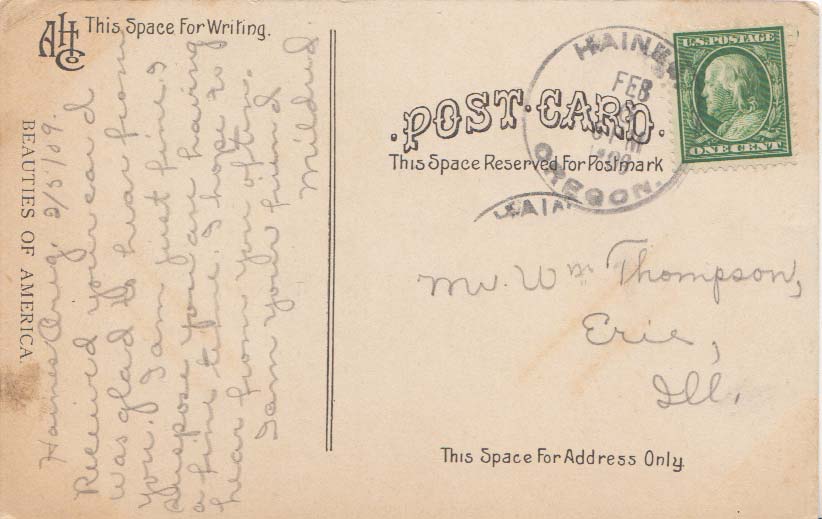 AHCo
This Space For Writing.
BEAUTIES OF AMERICA.
Haines Oreg. 2/5/09.
Received your card
was glad to hear from
you. I am just fine &
suspose you are having
a fine time. I hope to
hear from you often.
I am your friend
Mildred
POST CARD.
This Space Reserved For Postmark
HAINES
FEB
PM
1909
OREGON.
U.S. POSTAGE
ONE CENT
Mr. Wm Thompson,
Erie,
Ill.
This Space For Address Only.